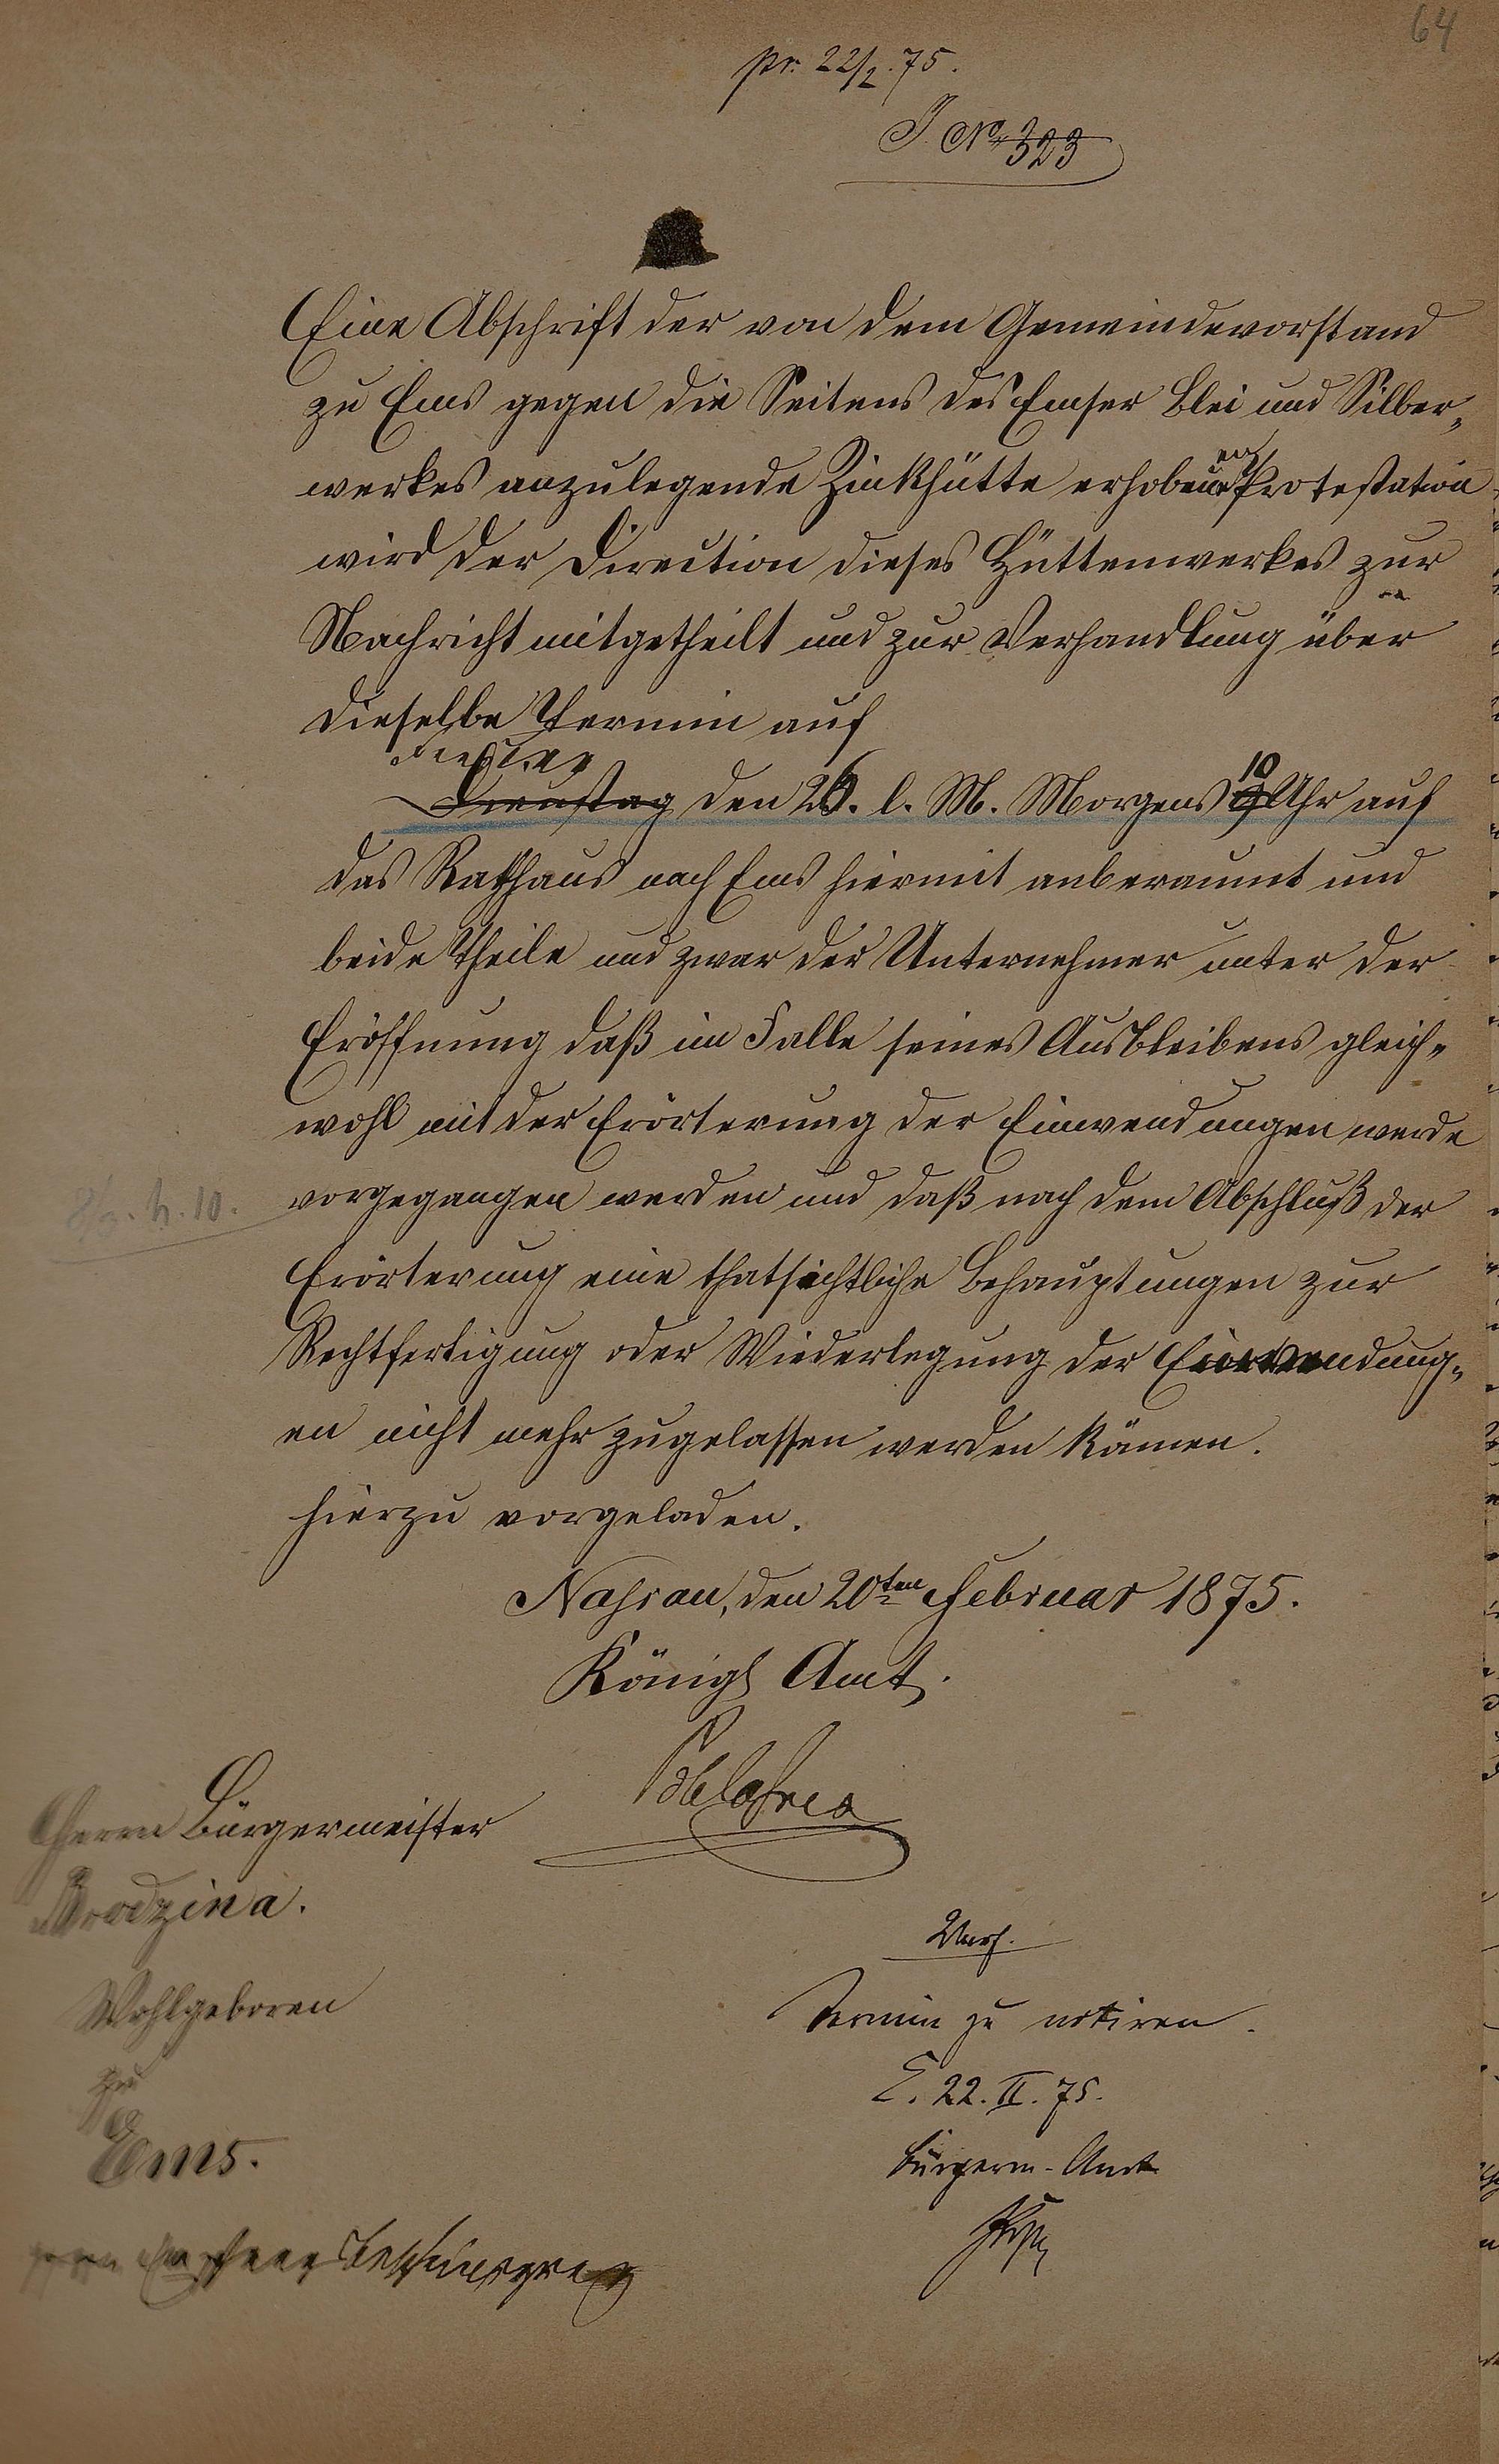 64
pr. 22/2. 75.
J. No 323
Eine Abschrift der von dem Gemeindevorstand
zu Ems gegen die Seitens des Emser Blei und Silber„
werkes anzulegende Zinkhütte erhobenen Protestation
wird der Direction dieses Hüttenwerkes zur
Nachricht mitgetheilt und zur Verhandlung über
dieselbe Termin auf
Dienstag den 26. l. M. Morgens 10 Uhr auf
das Rathhaus nach Ems hiermit anberaumt und
beide Theile und zwar der Unternehmer unter der
Eröffnung daß im Falle seines Ausbleibens gleich„
wohl mit der Erörterung der Einwendungen werde
vorgegangen werden und daß nach dem Abschluß der
Erörterung eine thatsächtliche Behauptungen zur
Rechtfertigung oder Wiederlegung der Einwendung„
en nicht mehr zugelassen werden können.
hierzu vorgeladen.
Nassau, den 20ten Februar 1875.
Königl Amt.
Herrn Bürgermeister
Brodzina.
Wohlgeboren
zu
Ems.
Termin zu notiren.
E. 22. II. 75.
Bürgerm-Amt